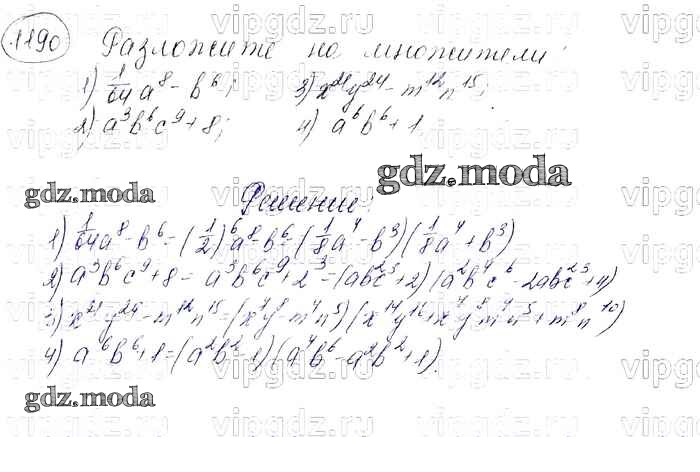 1190 Разложите на множители:
1) 1/64 a⁸ - b⁶; 3) x²¹y²⁴ - m¹²n¹⁵;
2) a³b⁶c⁹ + 8; 4) a⁶b⁶ + 1
gdz.moda
gdz.moda
Решение:
1) 1/64 a⁸ - b⁶ = (1/2)⁶a⁸ - b⁶ = (1/8 a⁴ - b³)(1/8 a⁴ + b³)
2) a³b⁶c⁹ + 8 = a³b⁶c⁹ + 2³ = (ab²c³ + 2)(a²b⁴c⁶ - 2ab²c³ + 4)
3) x²¹y²⁴ - m¹²n¹⁵ = (x⁷y⁸ - m⁴n⁵)(x¹⁴y¹⁶ + x⁷y⁸m⁴n⁵ + m⁸n¹⁰)
4) a⁶b⁶ + 1 = (a²b² - 1)(a⁴b⁶ - a²b² + 1).
gdz.moda
vipgdz.ru